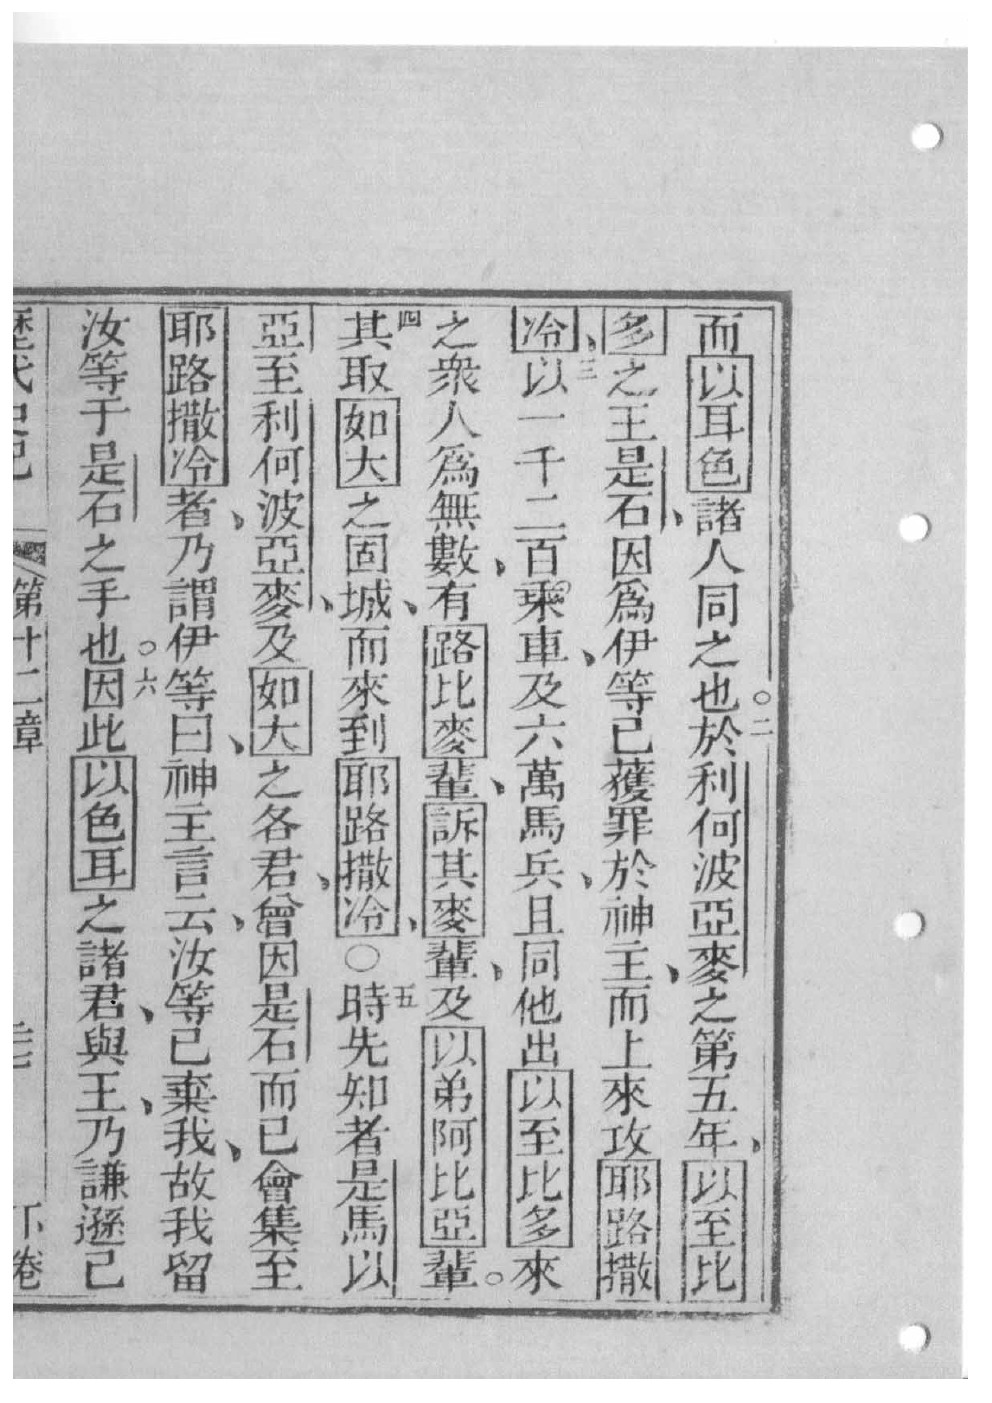 而以耳色諸人同之也。二於利何波亞麥之第五年、以至比
多之王是石、因爲伊等已獲罪於神主、而上來攻耶路撒
冷、三以一千二百乘車、及六萬馬兵、且同他出以至比多來
之衆人爲無數、有路比麥輩、訴其麥輩、及以弟阿比亞輩。
四其取如大之固城、而來到耶路撒冷、○五時先知者是馬以
亞至利何波亞麥、及如大之各君、曾因是石而已會集至
耶路撒冷者、乃謂伊等曰、神主言云、汝等已棄我、故我留
汝等于是石之手也。六因此以色耳之諸君、與王、乃謙遜己
歷代史紀 第十二章 下卷